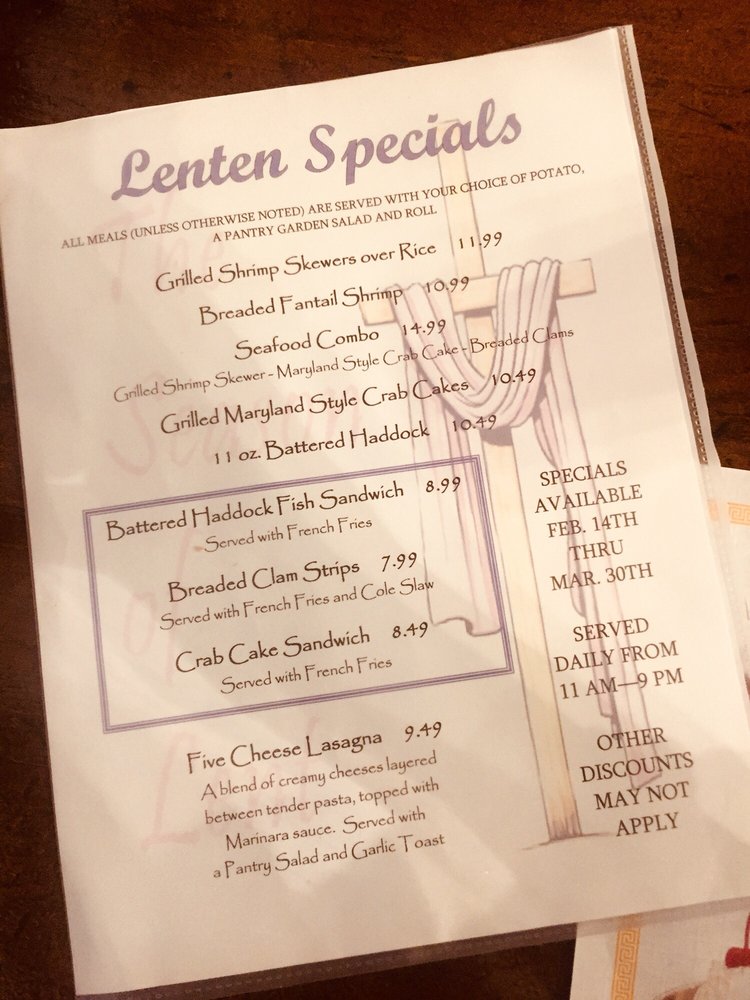 Lenten Specials
ALL MEALS (UNLESS OTHERWISE NOTED) ARE SERVED WITH YOUR CHOICE OF POTATO,
A PANTRY GARDEN SALAD AND ROLL
Grilled Shrimp Skewers over Rice 11.99
Breaded Fantail Shrimp 10.99
Seafood Combo 14.99
Grilled Shrimp Skewer - Maryland Style Crab Cake - Breaded Clams
Grilled Maryland Style Crab Cakes 10.49
11 oz. Battered Haddock 10.49
Battered Haddock Fish Sandwich 8.99
Served with French Fries
Breaded Clam Strips 7.99
Served with French Fries and Cole Slaw
Crab Cake Sandwich 8.49
Served with French Fries
Five Cheese Lasagna 9.49
A blend of creamy cheeses layered
between tender pasta, topped with
Marinara sauce. Served with
a Pantry Salad and Garlic Toast
SPECIALS
AVAILABLE
FEB. 14TH
THRU
MAR. 30TH
SERVED
DAILY FROM
11 AM—9 PM
OTHER
DISCOUNTS
MAY NOT
APPLY